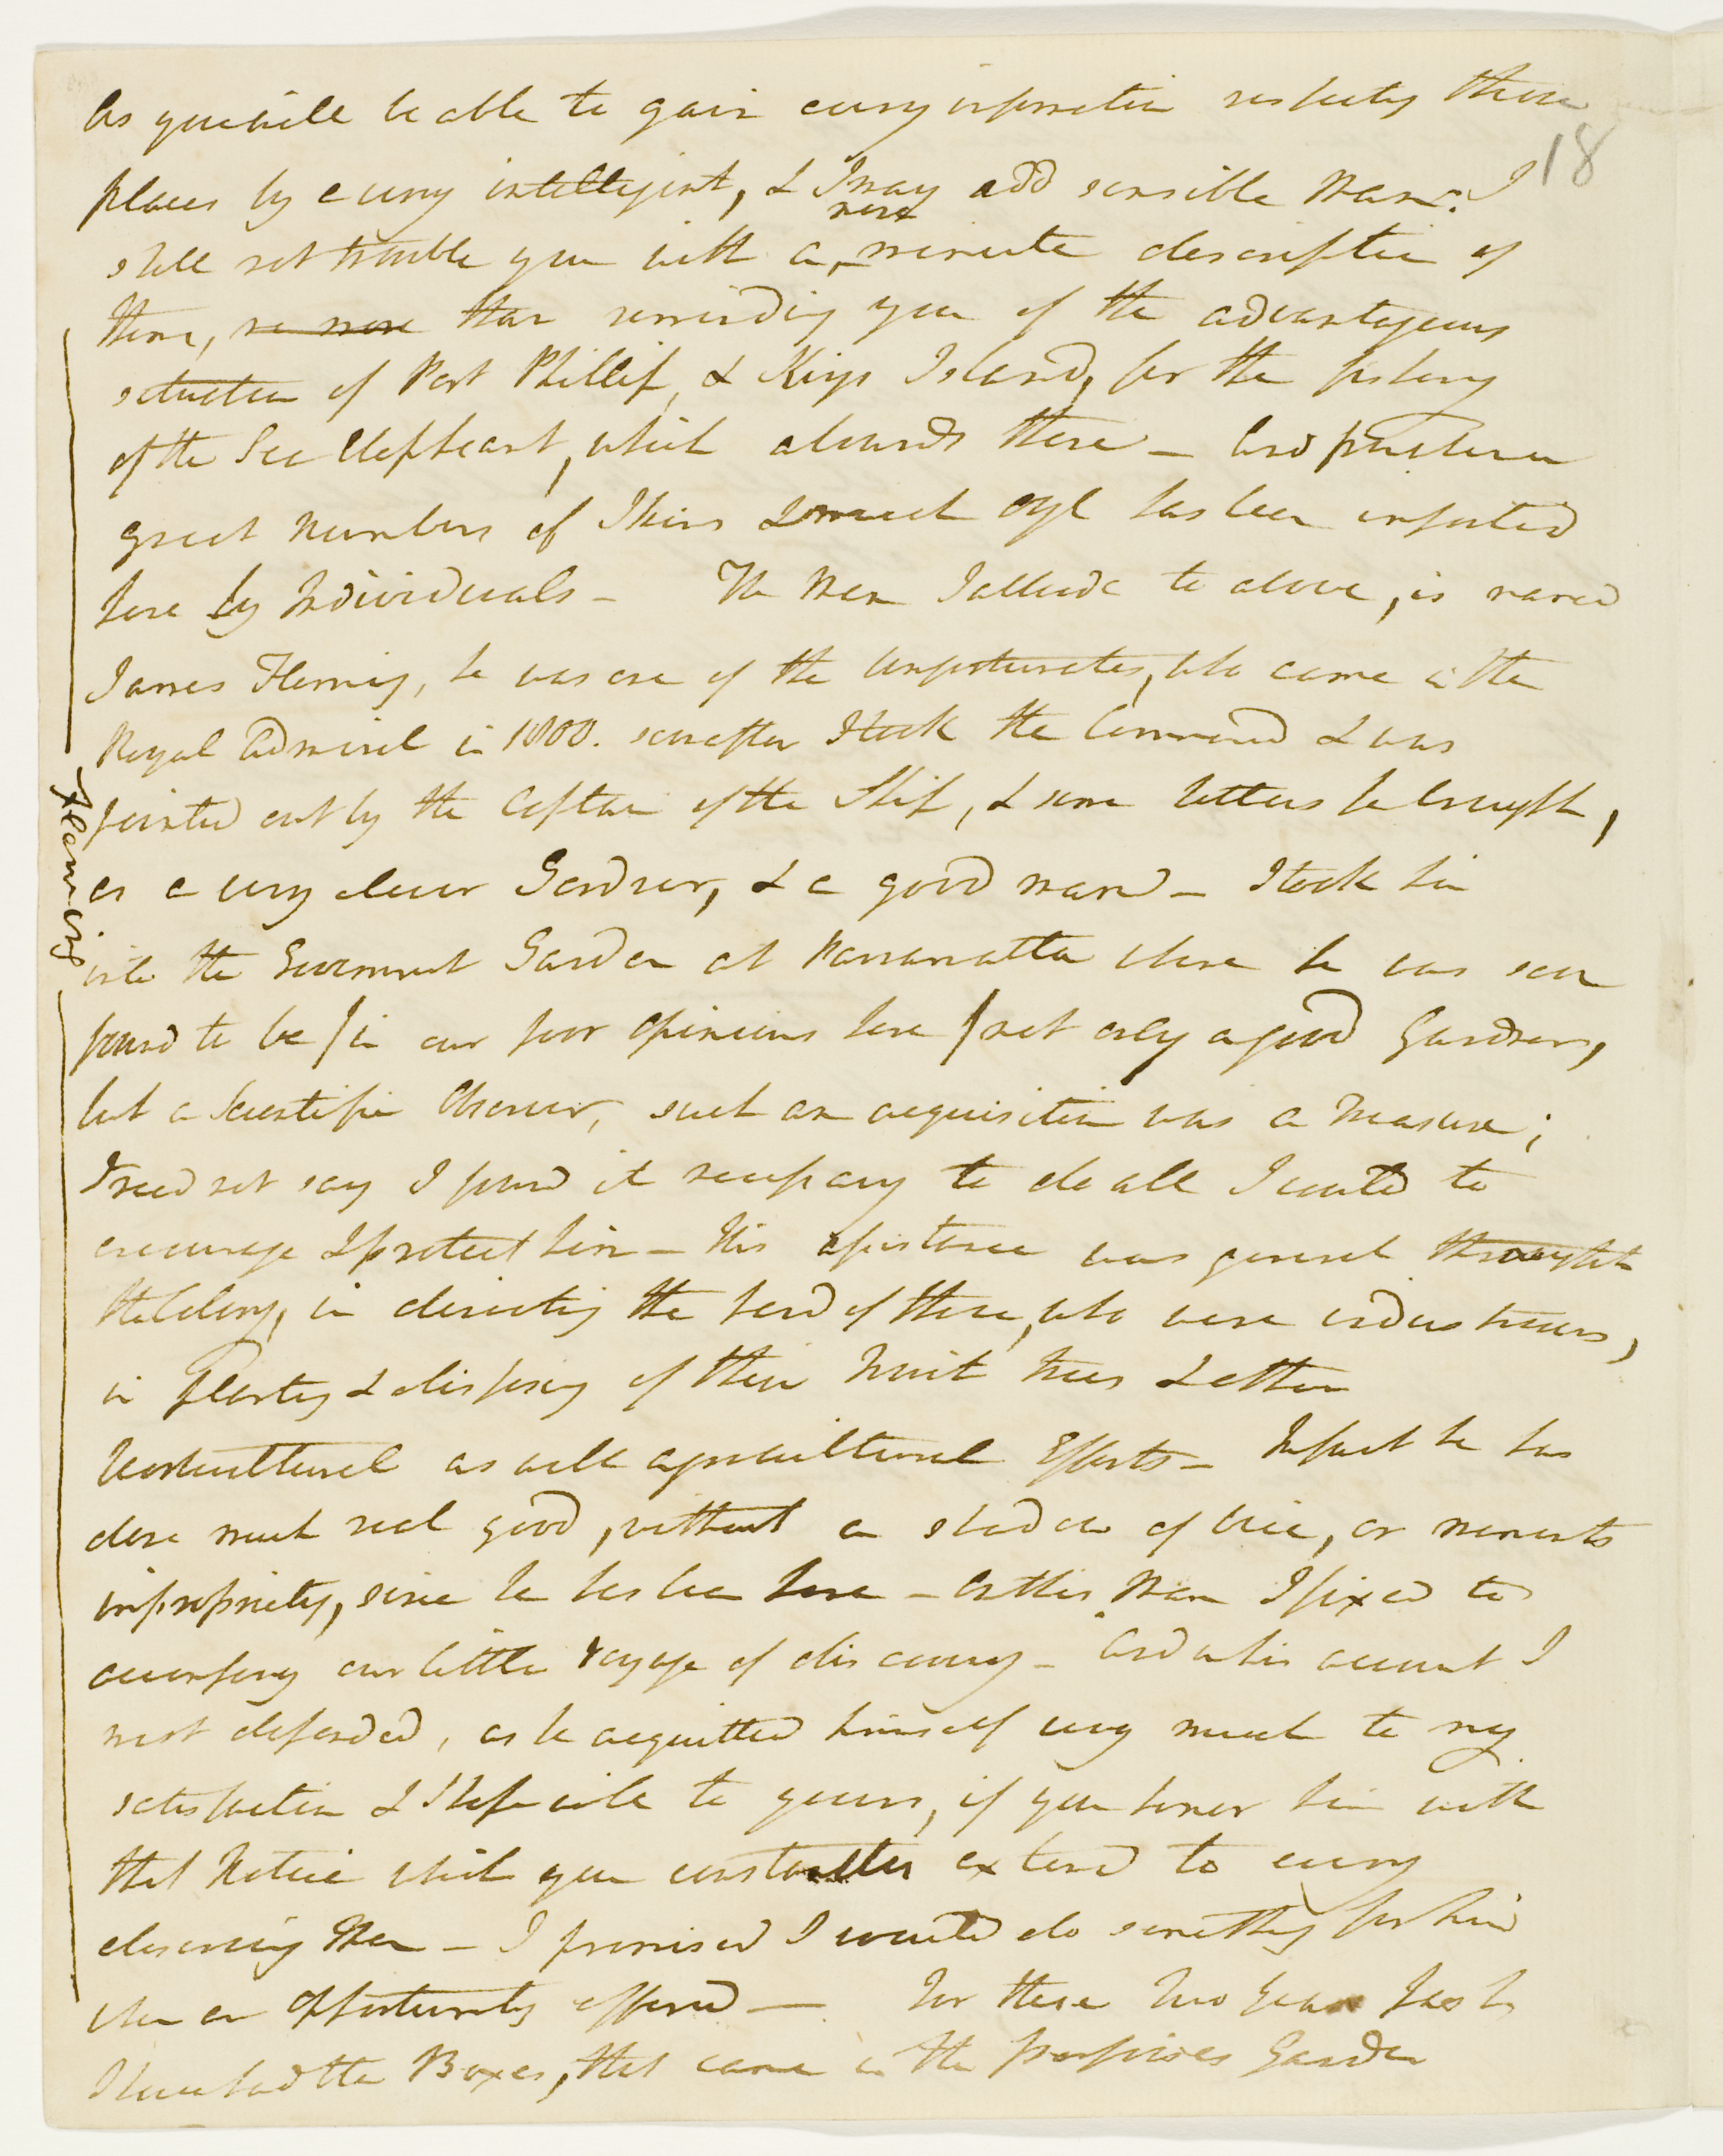 As you will be able to gain every information respecting those
18
places by a very intelligent, & I may add sensible Man. I
shall not trouble you with a more minute description of
them, no more than reminding you of the advantageous
situation of Port Phillip, & Kings Island, for the fishery
of the Sea Elephant, which abounds there — And from whence
great numbers of Skins & much Oyl has been imported
here by Individuals — The Man I allude to above, is named
James Fleming, he was one of the unfortunates, who came in the
Royal Admiral in 1800. soon after I took the Command & was
pointed out by the Captain of the Ship, & some letters he brought,
Fleming
as a very clever Gardner, & a good man — I took him
into the Government Garden at Parramatta where he was soon
found to be / in our poor Opinions here / not only a good Gardner,
but a Scientific Observer, such an acquisition was a treasure;
I need not say I found it necessary to do all I could to
encourage & protect him — His assistance was general throughout
the Colony, in directing the hand of those, who were industrious,
in Planting & disposing of their Fruit trees & other
Horticultural as well agricultural Efforts — In fact he has
done much real good, without a shadow of vice, or moments
impropriety, since he has been here — On this Man I fixed to
accompany our little Voyage of discovery — And on his account I
most depended, as he acquitted himself very much to my
satisfaction & I hope will to yours, if you honor him with
that Notice which you constantly extend to every
deserving Man — I promised I would do something for him
when an opportunity offered — For these two Years past
I have had the Boxes, that came in the Porpoises Garden